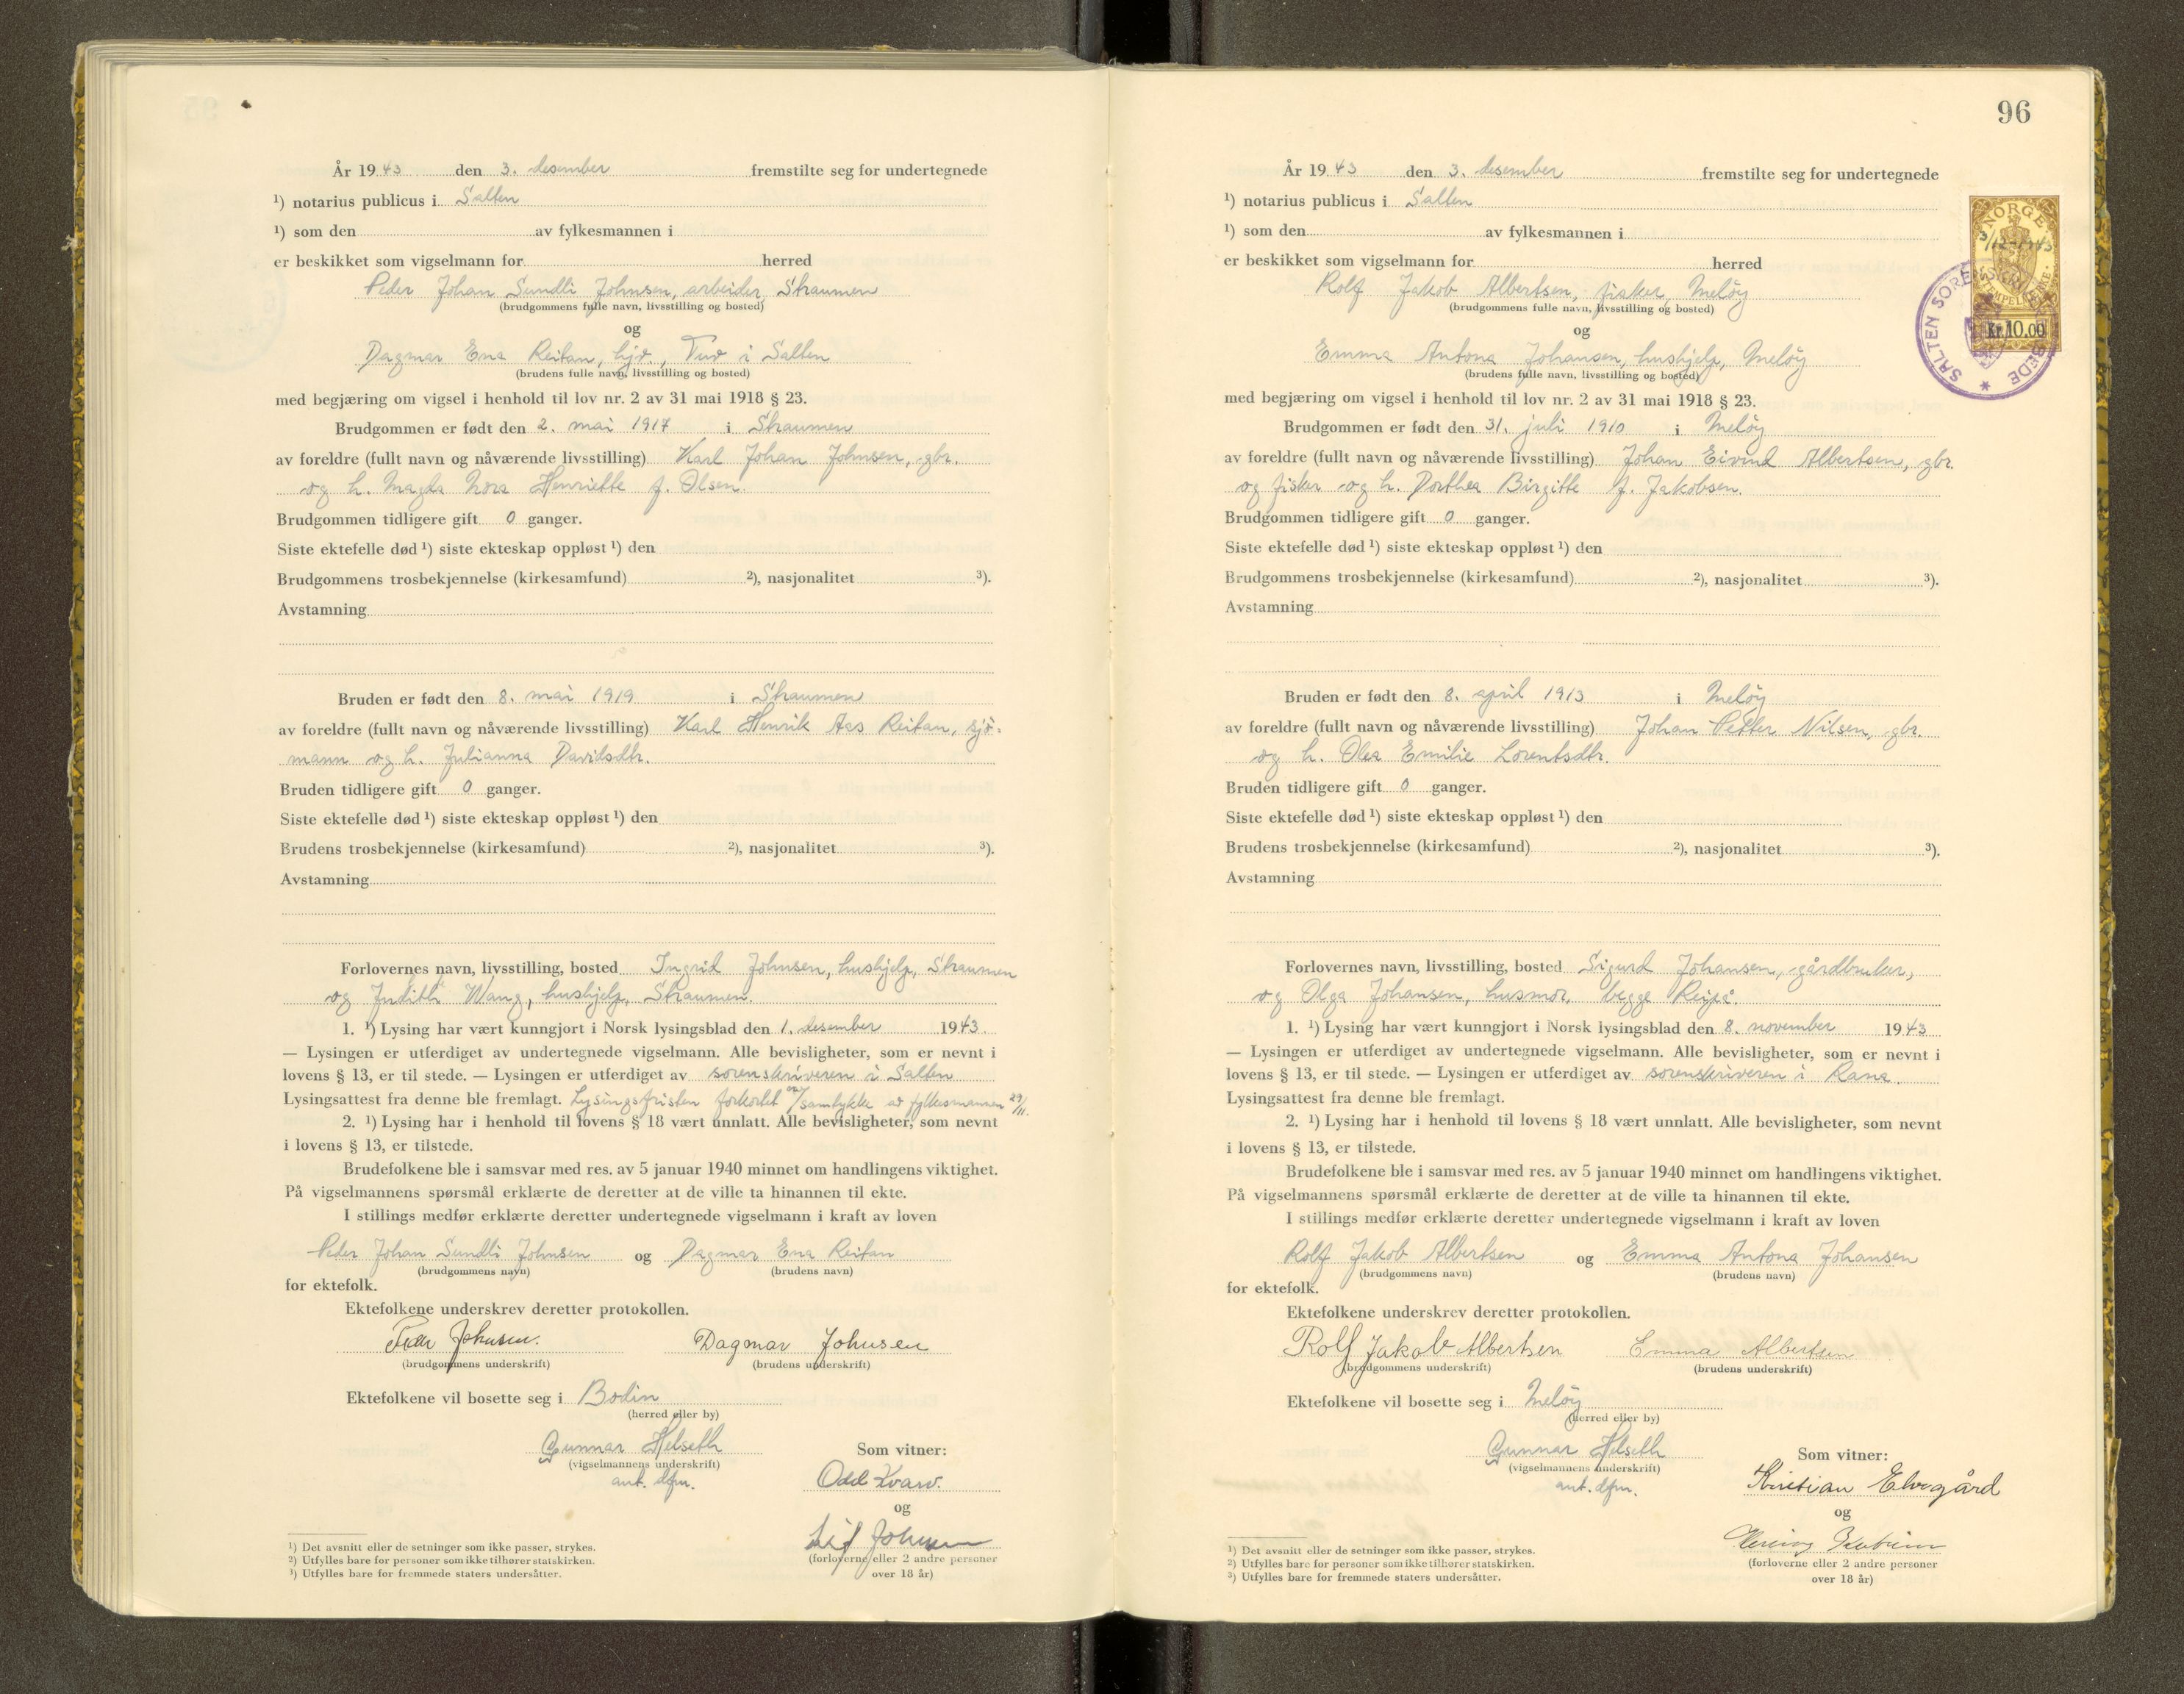 År 1943 den 3. desember fremstilte seg for undertegnede
¹) notarius publicus i Salten
¹) som den av fylkesmannen i
er beskikket som vigselmann for herred
Peder Johan Sundli Johnsen, arbeider, Straumen
(brudgommens fulle navn, livsstilling og bosted)
og
Dagmar Ena Reitan, hjv., Tuv i Salten
(brudens fulle navn, livsstilling og bosted)
med begjæring om vigsel i henhold til lov nr. 2 av 31 mai 1918 § 23.
Brudgommen er født den 2. mai 1917 i Straumen
av foreldre (fullt navn og nåværende livsstilling) Karl Johan Johnsen, gbr.
og h. Magda Nora Henriette f. Olsen.
Brudgommen tidligere gift 0 ganger.
Siste ektefelle død ¹) siste ekteskap oppløst ¹) den
Brudgommens trosbekjennelse (kirkesamfund) ²), nasjonalitet ³).
Avstamning
Bruden er født den 8. mai 1919 i Straumen
av foreldre (fullt navn og nåværende livsstilling) Karl Henrik Aas Reitan, sjø-
mann og h. Julianna Davidsdtr.
Bruden tidligere gift 0 ganger.
Siste ektefelle død ¹) siste ekteskap oppløst ¹) den
Brudens trosbekjennelse (kirkesamfund) ²), nasjonalitet ³).
Avstamning
Forlovernes navn, livsstilling, bosted Ingrid Johnsen, hushjelp, Straumen
og Judith Wang, hushjelp, Straumen.
1. ¹) Lysing har vært kunngjort i Norsk lysingsblad den 1. desember 1943.
— Lysingen er utferdiget av undertegnede vigselmann. Alle bevisligheter, som er nevnt i
lovens § 13, er til stede. — Lysingen er utferdiget av sorenskriveren i Salten
Lysingsattest fra denne ble fremlagt. Lysingsfristen forkortet samtykke av fylkesmannen 29/11.
2. ¹) Lysing har i henhold til lovens § 18 vært unnlatt. Alle bevisligheter, som nevnt
i lovens § 13, er tilstede.
Brudefolkene ble i samsvar med res. av 5 januar 1940 minnet om handlingens viktighet.
På vigselmannens spørsmål erklærte de deretter at de ville ta hinannen til ekte.
I stillings medfør erklærte deretter undertegnede vigselmann i kraft av loven
Peder Johan Sundli Johnsen og Dagmar Ena Reitan
(brudgommens navn) (brudens navn)
for ektefolk.
Ektefolkene underskrev deretter protokollen.
Peder Johnsen. Dagmar Johnsen
(brudgommens underskrift) (brudens underskrift)
Ektefolkene vil bosette seg i Bodin
(herred eller by)
Gunnar Helseth Som vitner:
(vigselmannens underskrift)
aut. dfm. Odd Kvarv.
og
Leif Johnsen
(forloverne eller 2 andre personer
over 18 år)
¹) Det avsnitt eller de setninger som ikke passer, strykes.
²) Utfylles bare for personer som ikke tilhører statskirken.
³) Utfylles bare for fremmede staters undersåtter.
96
NORGE
3/12-1943
STEMPELMERKE
Kr. 10.00
SALTEN SORENSKRIVEREMBEDE
År 1943 den 3. desember fremstilte seg for undertegnede
¹) notarius publicus i Salten
¹) som den av fylkesmannen i
er beskikket som vigselmann for herred
Rolf Jakob Albertsen, fisker, Meløy
(brudgommens fulle navn, livsstilling og bosted)
og
Emma Antona Johansen, hushjelp, Meløy
(brudens fulle navn, livsstilling og bosted)
med begjæring om vigsel i henhold til lov nr. 2 av 31 mai 1918 § 23.
Brudgommen er født den 31. juli 1910 i Meløy
av foreldre (fullt navn og nåværende livsstilling) Johan Eivind Albertsen, gbr.
og fisker og h. Dorthea Birgitte f. Jakobsen.
Brudgommen tidligere gift 0 ganger.
Siste ektefelle død ¹) siste ekteskap oppløst ¹) den
Brudgommens trosbekjennelse (kirkesamfund) ²), nasjonalitet ³).
Avstamning
Bruden er født den 8. april 1913 i Meløy
av foreldre (fullt navn og nåværende livsstilling) Johan Petter Nilsen, gbr.
og h. Olea Emilie Lorentsdtr.
Bruden tidligere gift 0 ganger.
Siste ektefelle død ¹) siste ekteskap oppløst ¹) den
Brudens trosbekjennelse (kirkesamfund) ²), nasjonalitet ³).
Avstamning
Forlovernes navn, livsstilling, bosted Sigurd Johansen, gårdbruker,
og Olga Johansen, husmor, begge Reipå.
1. ¹) Lysing har vært kunngjort i Norsk lysingsblad den 8. november 1943
— Lysingen er utferdiget av undertegnede vigselmann. Alle bevisligheter, som er nevnt i
lovens § 13, er til stede. — Lysingen er utferdiget av sorenskriveren i Rana.
Lysingsattest fra denne ble fremlagt.
2. ¹) Lysing har i henhold til lovens § 18 vært unnlatt. Alle bevisligheter, som nevnt
i lovens § 13, er tilstede.
Brudefolkene ble i samsvar med res. av 5 januar 1940 minnet om handlingens viktighet.
På vigselmannens spørsmål erklærte de deretter at de ville ta hinannen til ekte.
I stillings medfør erklærte deretter undertegnede vigselmann i kraft av loven
Rolf Jakob Albertsen og Emma Antona Johansen
(brudgommens navn) (brudens navn)
for ektefolk.
Ektefolkene underskrev deretter protokollen.
Rolf Jakob Albertsen Emma Albertsen
(brudgommens underskrift) (brudens underskrift)
Ektefolkene vil bosette seg i Meløy
(herred eller by)
Gunnar Helseth Som vitner:
(vigselmannens underskrift)
aut. dfm. Kristian Elvegård
og
(forloverne eller 2 andre personer
over 18 år)
¹) Det avsnitt eller de setninger som ikke passer, strykes.
²) Utfylles bare for personer som ikke tilhører statskirken.
³) Utfylles bare for fremmede staters undersåtter.